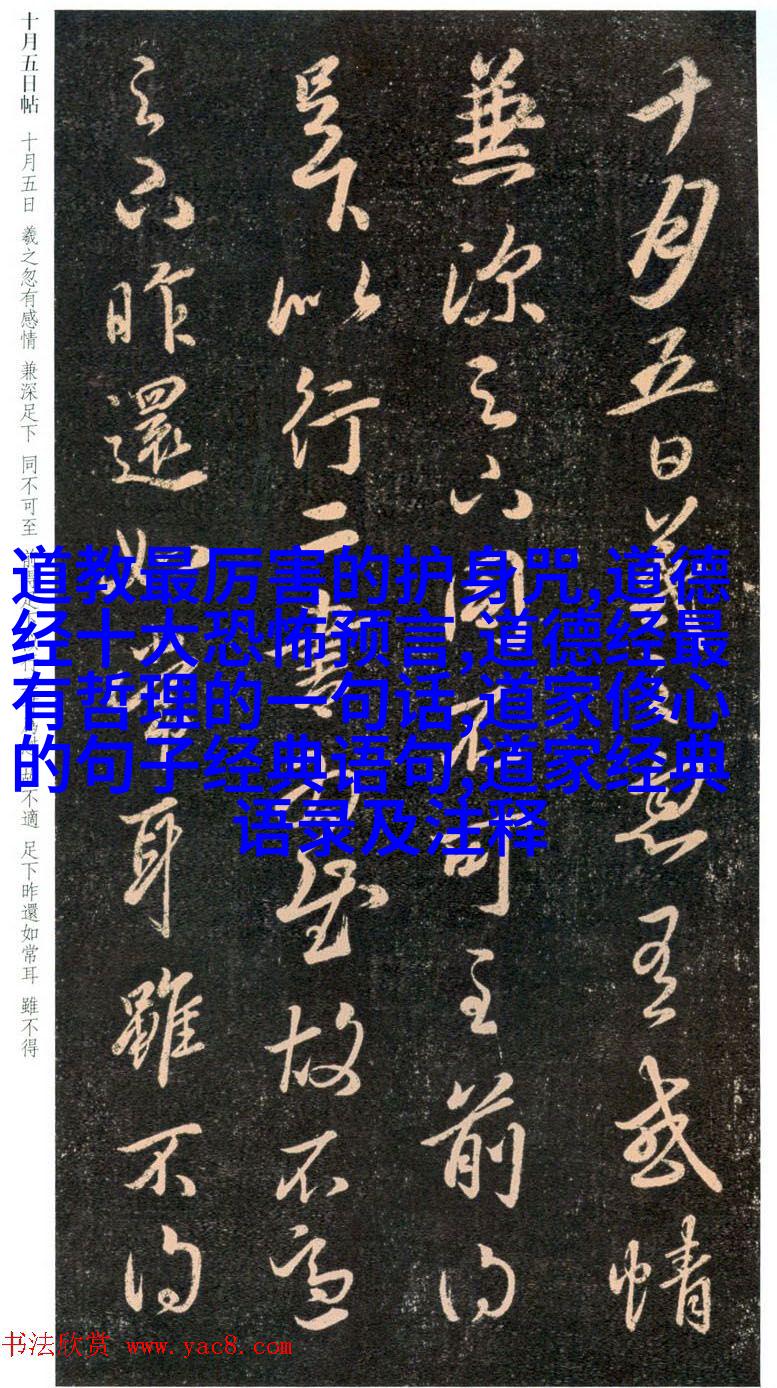 十月五日羲之忽有感情
兼深足下同不可至前得
下以行二書慰故不適
足下昨還如常耳雖不得
十月五日帖 十月五日 羲之忽有感情 兼深足下 同不可至 不適 足下昨還如常耳 雖不得
道教最厉害的护身咒,道德
经十大恐怖预言,道德经最
有哲理的一句话,道家修心
的句子经典语句,道家经典
语录及注释
书法欣赏 www.yac8.com